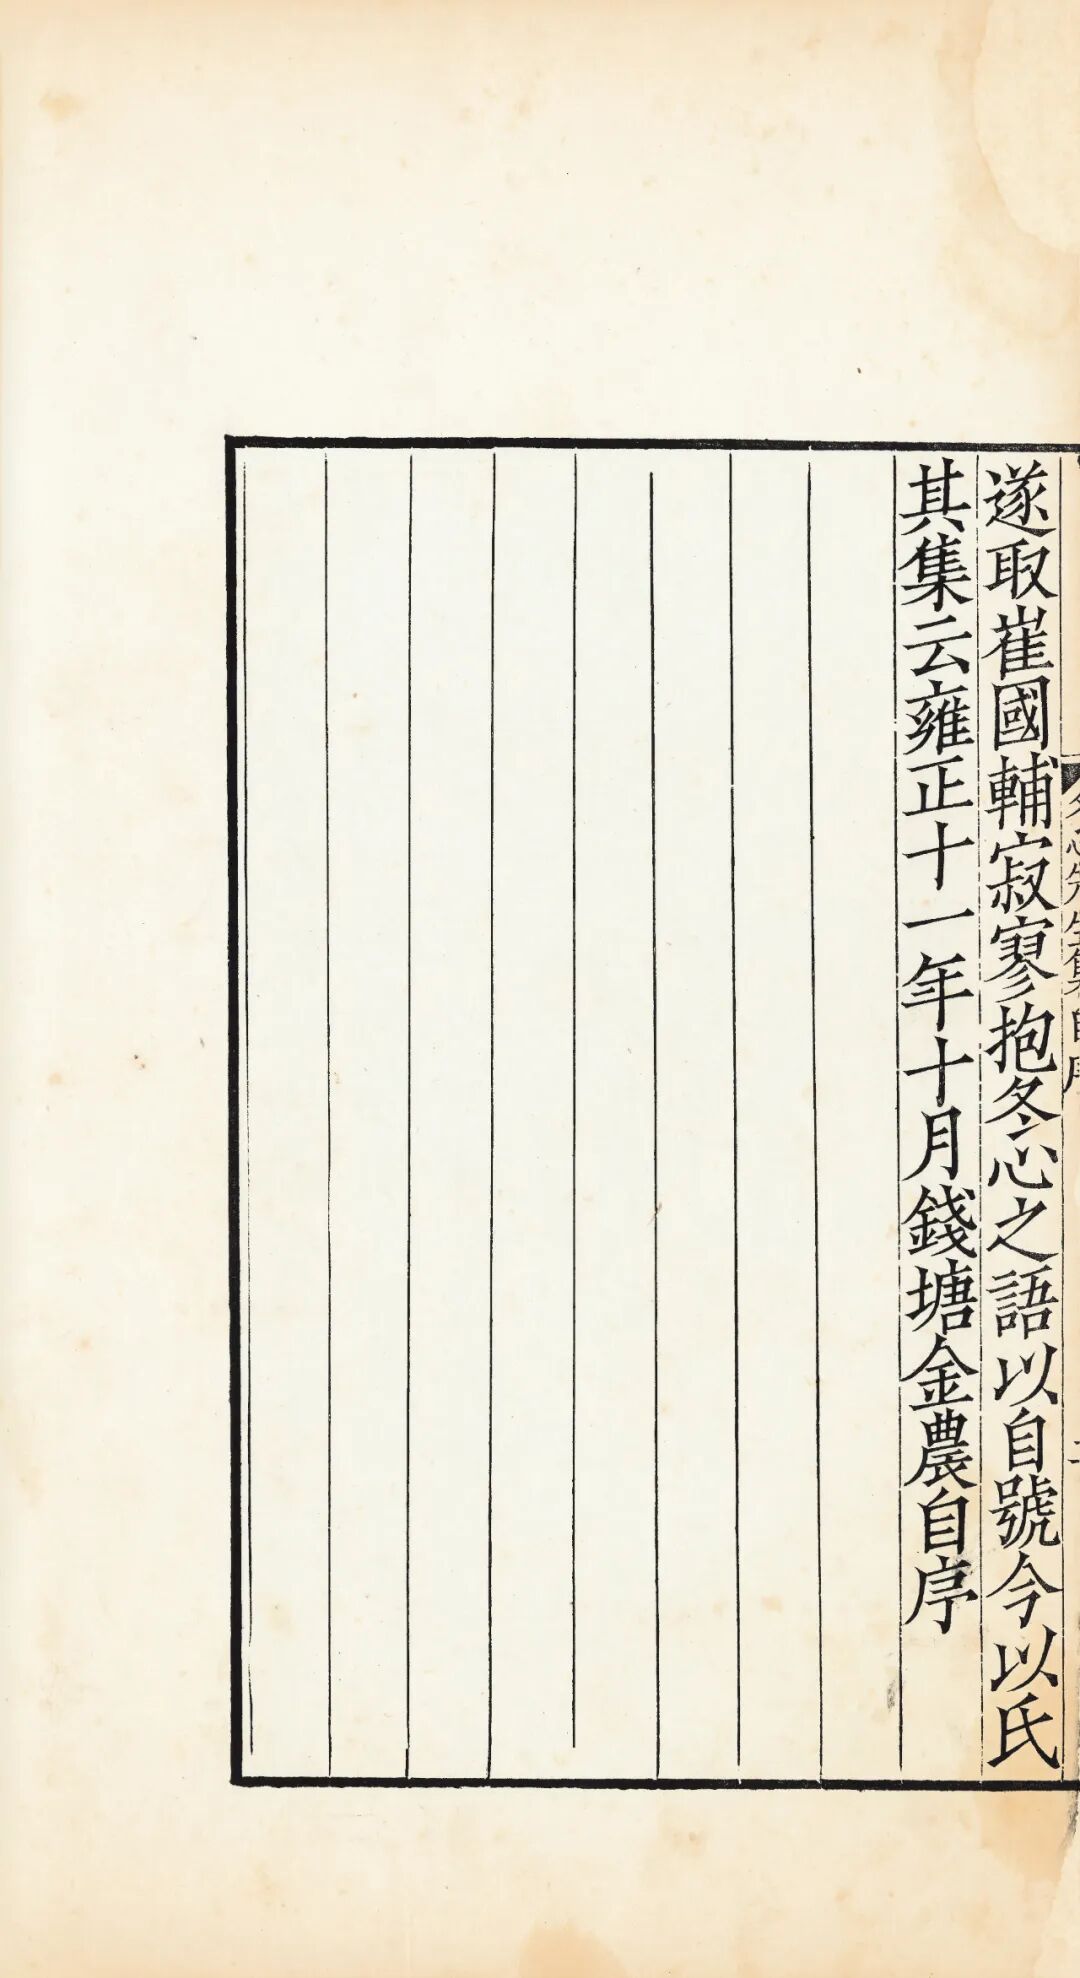 遂取崔國輔寂寥抱冬心之語以自號今以氏
其集云雍正十一年十月錢塘金農自序